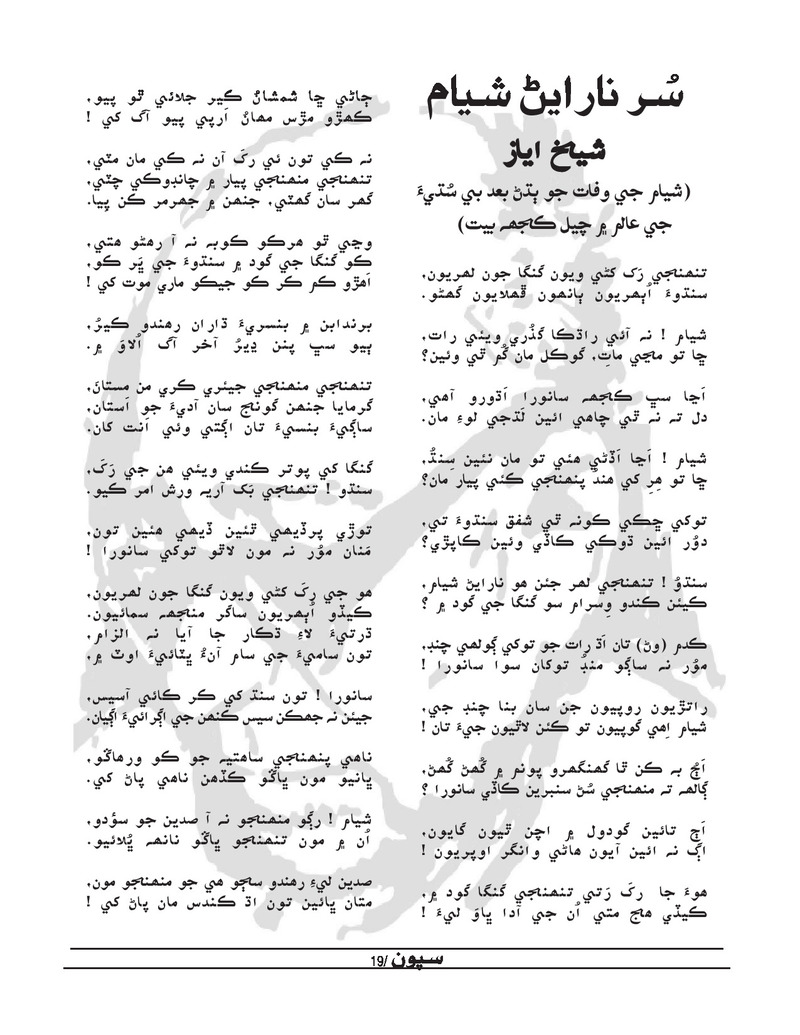 سُر نارايڻ شيام
شيخ اياز
(شيام جي وفات جو ٻڌڻ بعد بي سُڌيءَ
جي عالم ۾ چيل ڪجهه بيت)
تنهنجي رَک کڻي ويون گنگا جون لهريون،
سنڌوءَ اُڀھريون ٻانهون ڦهلايون گهڻو.
شيام ! نه آئي راڌڪا گذُري ويئي رات،
ڇا تو مڃي ماتِ، گوڪل مان گُم ٿي وئين؟
اَڃا سڀ ڪجهه سانورا اَڌورو آهي،
دل ته نه ٿي چاهي ائين لَڏجي لوءِ مان.
شيام ! اَڃا اَڏڻي هئي تو مان نئين سِنڌُ،
ڇا تو هِرِ کي هنڌ پنهنجي ڪئي پيار مان؟
توکي ڇڪي ڪونه ٿي شفق سنڌوءَ تي،
دوُر ائين ڌوڪي ڪاڏي وئين ڪاپڙي؟
سنڌوُ ! تنهنجي لهر جئن هو نارايڻ شيام،
ڪيئن ڪندو وِسرام سو گنگا جي گود ۾ ؟
ڪدم (وڻ) تان اَڌ رات جو توکي ڳولهي چنڊ،
موُر نه ساڳو منڊُ توکان سوا سانورا !
راتڙيون روپيون جن سان بنا چنڊ جي،
شيام اِهي گوپيون تو ڪئن لاٿيون جيءَ تان !
اَڄُ به ڪن ٿا گهنگهرو پونم ۾ گُهڻ گُهڻ،
ڳالهه ته منهنجي سُڻ سنبرين ڪاڏي سانورا ؟
اَڄ تائين گودول ۾ اچن ٿيون گايون،
اڳ نه ائين آيون هاڻي وانگر اوپريون !
هوءَ جا رکَ رَتي تنهنجي گنگا گود ۾،
ڪيڏي هڃ متي اُن جي آڌا ڀاوَ ليءَ !
ڄاڻي ڇا شمشانُ ڪير جلائي ٿو پيو،
ڪهڙو مڙس مهانُ اَرپي پيو آگ کي !
نه ڪي تون ئي رکَ آن نه ڪي مان مٽي،
تنهنجي منهنجي پيار ۾ چاندوڪي چٽي،
گهر سان گهٽي، جنهن ۾ جهرمر ڪن پيا.
وڃي ٿو هرڪو ڪوبه نه آ رهڻو هتي،
ڪو گنگا جي گود ۾ سنڌوءَ جي ڀَر ڪو،
اَهڙو ڪم ڪر ڪو جيڪو ماري موت کي !
برندابن ۾ بنسريءَ ڌاران رهندو ڪيرُ،
ٻيو سڀ پنن ڍيرُ آخر آگ اُلاوَ ۾.
تنهنجي منهنجي جيئري ڪري من مستان،
گرمايا جنهن گونج سان آديءَ جو اَستان،
ساڳيءَ بنسيءَ تان اڳتي وئي اَنت کان.
گنگا کي پوتر ڪندي ويئي هن جي رَکَ،
سنڌو ! تنهنجي ٻَک آريه ورش امر ڪيو.
توڙي پرڏيهي ٿئين ڏيهي هئين تون،
مَنان موُر نه مون لاٿو توکي سانورا !
هو جي رکَ کڻي ويون گنگا جون لهريون،
ڪيڏو اُڀھريون ساگر منجهه سمائيون.
ڌرتيءَ لاءِ ڌڪار جا آيا نه الزام،
تون ساميءَ جي سام آنءُ ڀٽائيءَ اوٽ ۾.
سانورا ! تون سنڌ کي ڪر ڪائي آسيس،
جيئن نه جهڪن سيس ڪنهن جي اڳرائيءَ اڳيان.
ناهي پنهنجي ساهتيه جو ڪو ورهاڱو،
ڀانيو مون ڀاڱو ڪڏهن ناهي پاڻ کي.
شيام ! رڳو منهنجو نه آ صدين جو سؤدو،
اُن ۾ مون تنهنجو ڀاڱو نانهه ڀُلائيو.
صدين ليءِ رهندو سڄو هي جو منهنجو مون،
متان ڀائين تون اڌ ڪندس مان پاڻ کي !
سپون /19